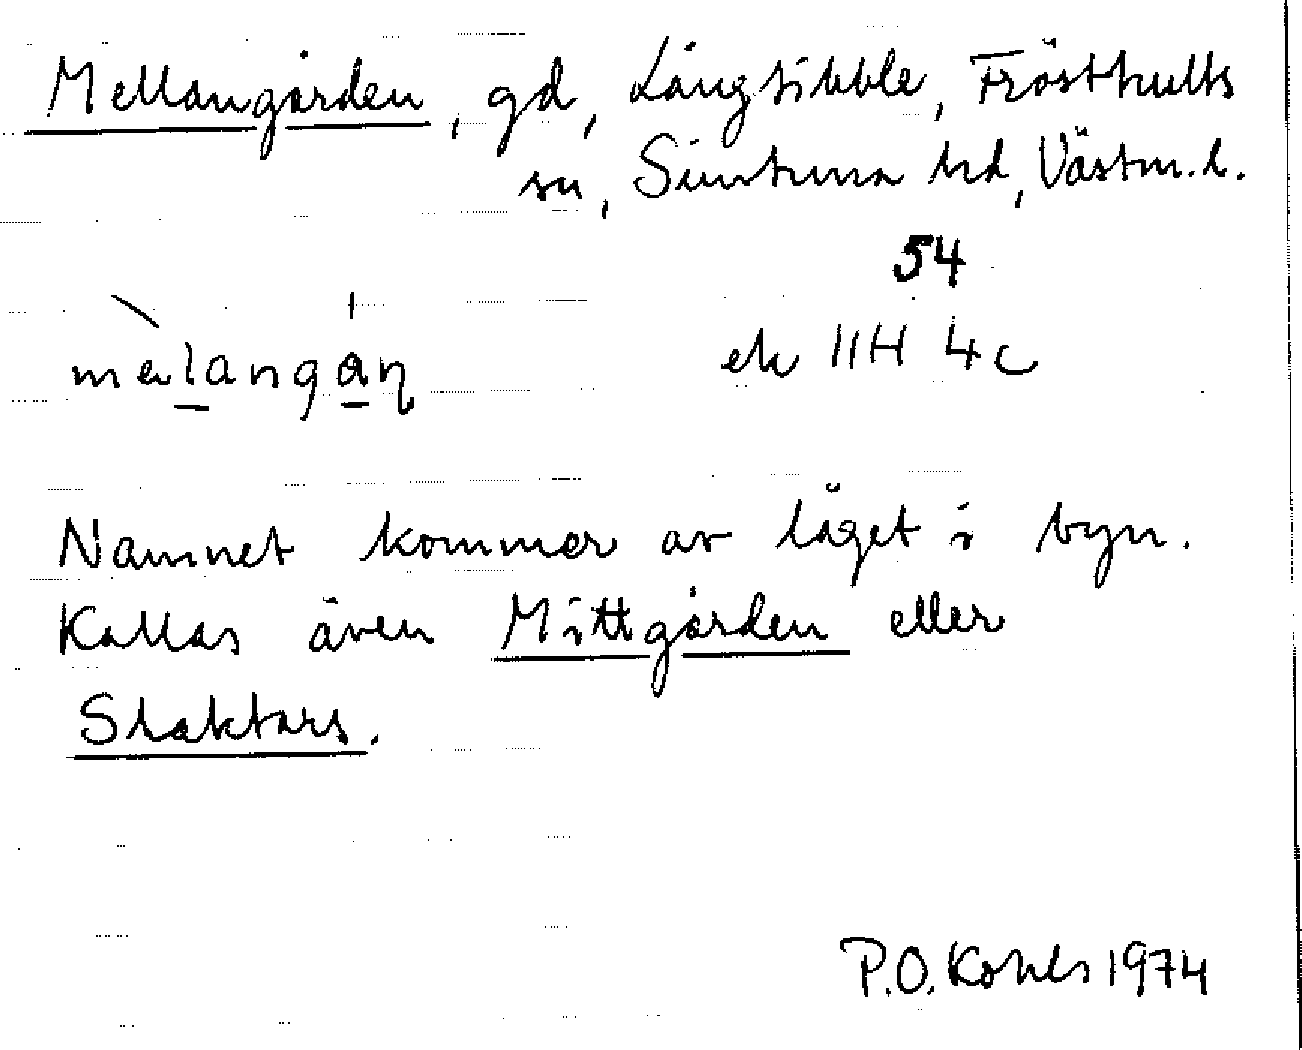 Mellangården, gd, Långtibble, Frösthults
sn, Simtuna hd, Västm. l.
54
mèlangán ek 11H 4c
Namnet kommer av läget i byn.
Kallas även Mittgården eller
Slaktars.
P.O. Kohls 1974